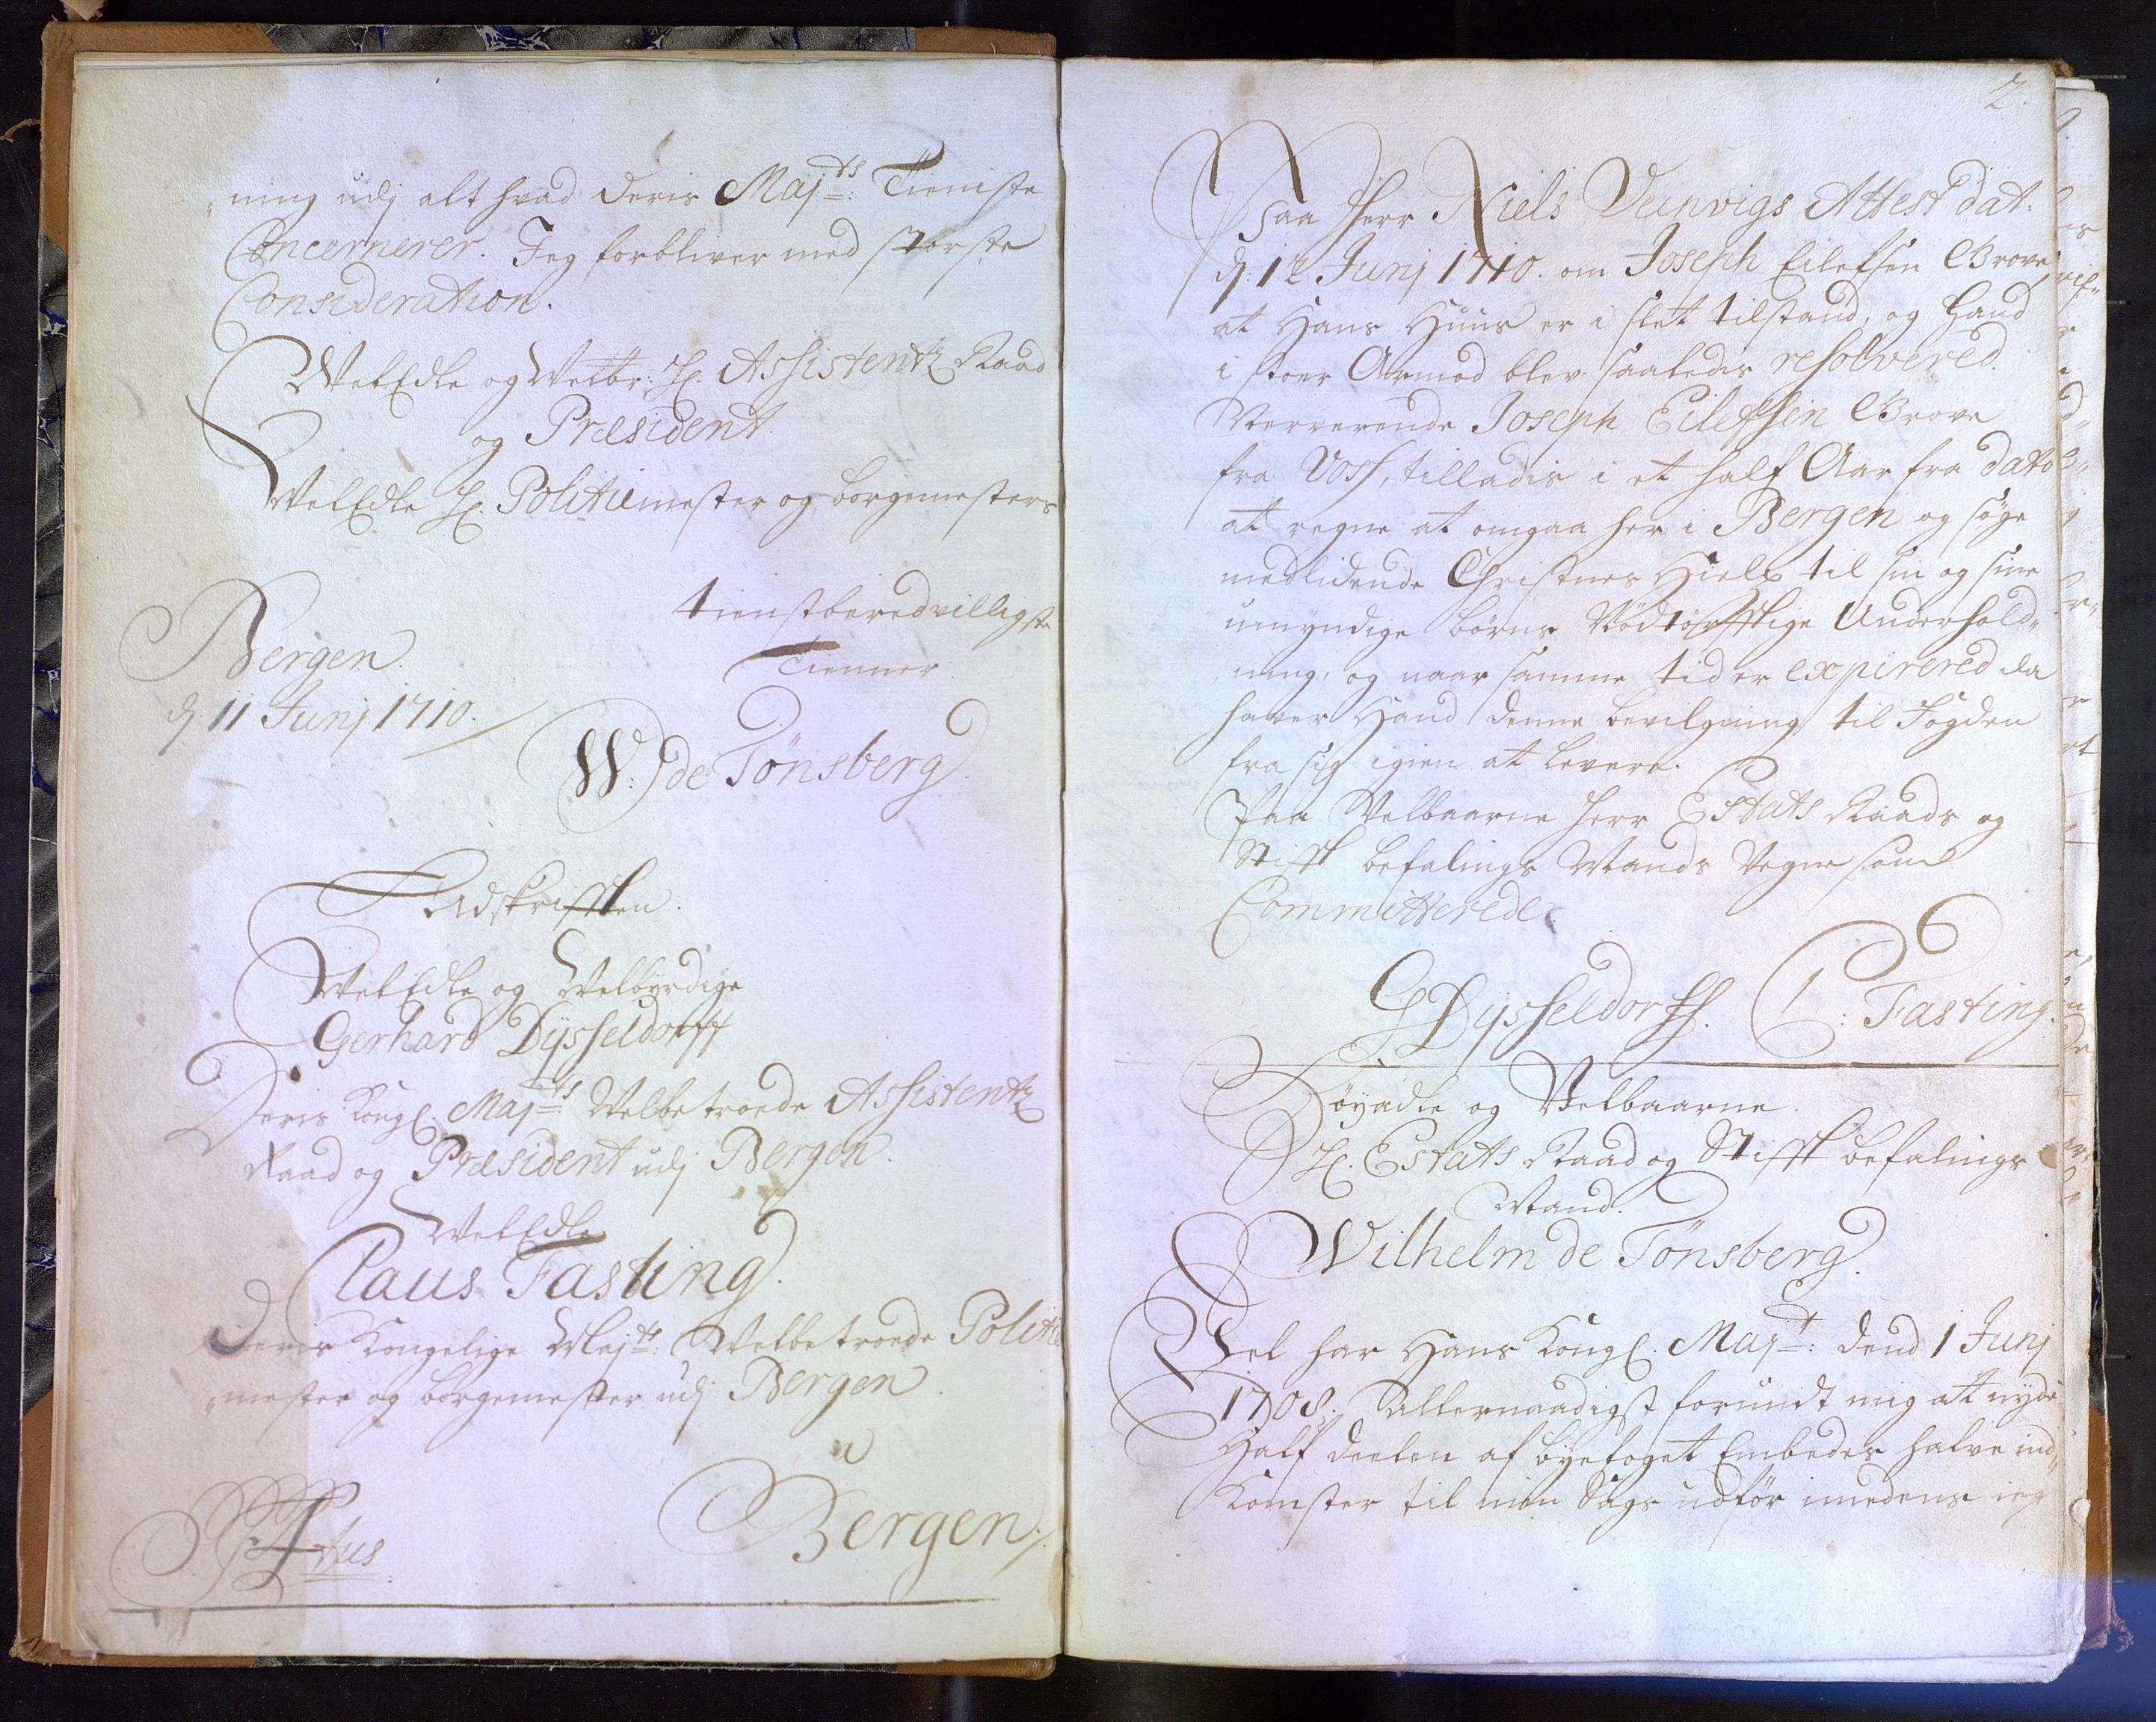 „ning udj alt hvad deris Maj:ts Tieniste
Concernerer. Jeg forbliver med største
Consideration.
WelEdle og Welb: H. Assistentz Raad
og Præsident
WelEdle H. Politiemester og borgemesters
tienstberedvilligste
Tienner
Bergen
d 11 Junj 1710.
W: de Tønsberg
Udskrifften.
WelEdle og Welbyrdige
Gerhard Dysseldorff
Deris Kongl. Maj:ts Velbetroede Assistentz
Raad og Præsident udj Bergen.
WelEdle
Claus Fasting.
Deris Kongelige Maj:ts Velbetroede Politie
„mester og borgemester udj Bergen
a
Bergen.
2.
Paa Herr Niels Weinvigs Attest dat.
d: 12 Junj 1710. om Joseph Eilefsen Grove
at Hans Huus er i slet tilstand, og Hand
i stoer Armod blev saaledis resolvered.
Nerverende Joseph Eilefsen Grove
fra Voss, tilladis i et half Aar fra dato
at regne at omgaa her i Bergen og søge
medlidende Christnes Hielp til sin og sine
umyndige børns Nødtørfftige Underhold„
„ning, og naar samme tid er expirered da
haver Hand denne bevilgning til Fogden
fra sig igien at levere.
Paa Velbaarne Herr Estats Raads og
Stifft befalings Mands Vegne som
Committerede.
G Dysseldorff. C: Fasting.
Høyædle og Velbaarne
H. Estats Raad og Stifft befalings
Mand.
Wilhelm de Tønsberg.
Vel har Hans Kongl. Maj:t dend 1 Junj
1708. Allernaadigst forundt mig at nyde
Half deelen af byefoget Embedes halve ind„
Komster til min Sags udfør imedens ieg